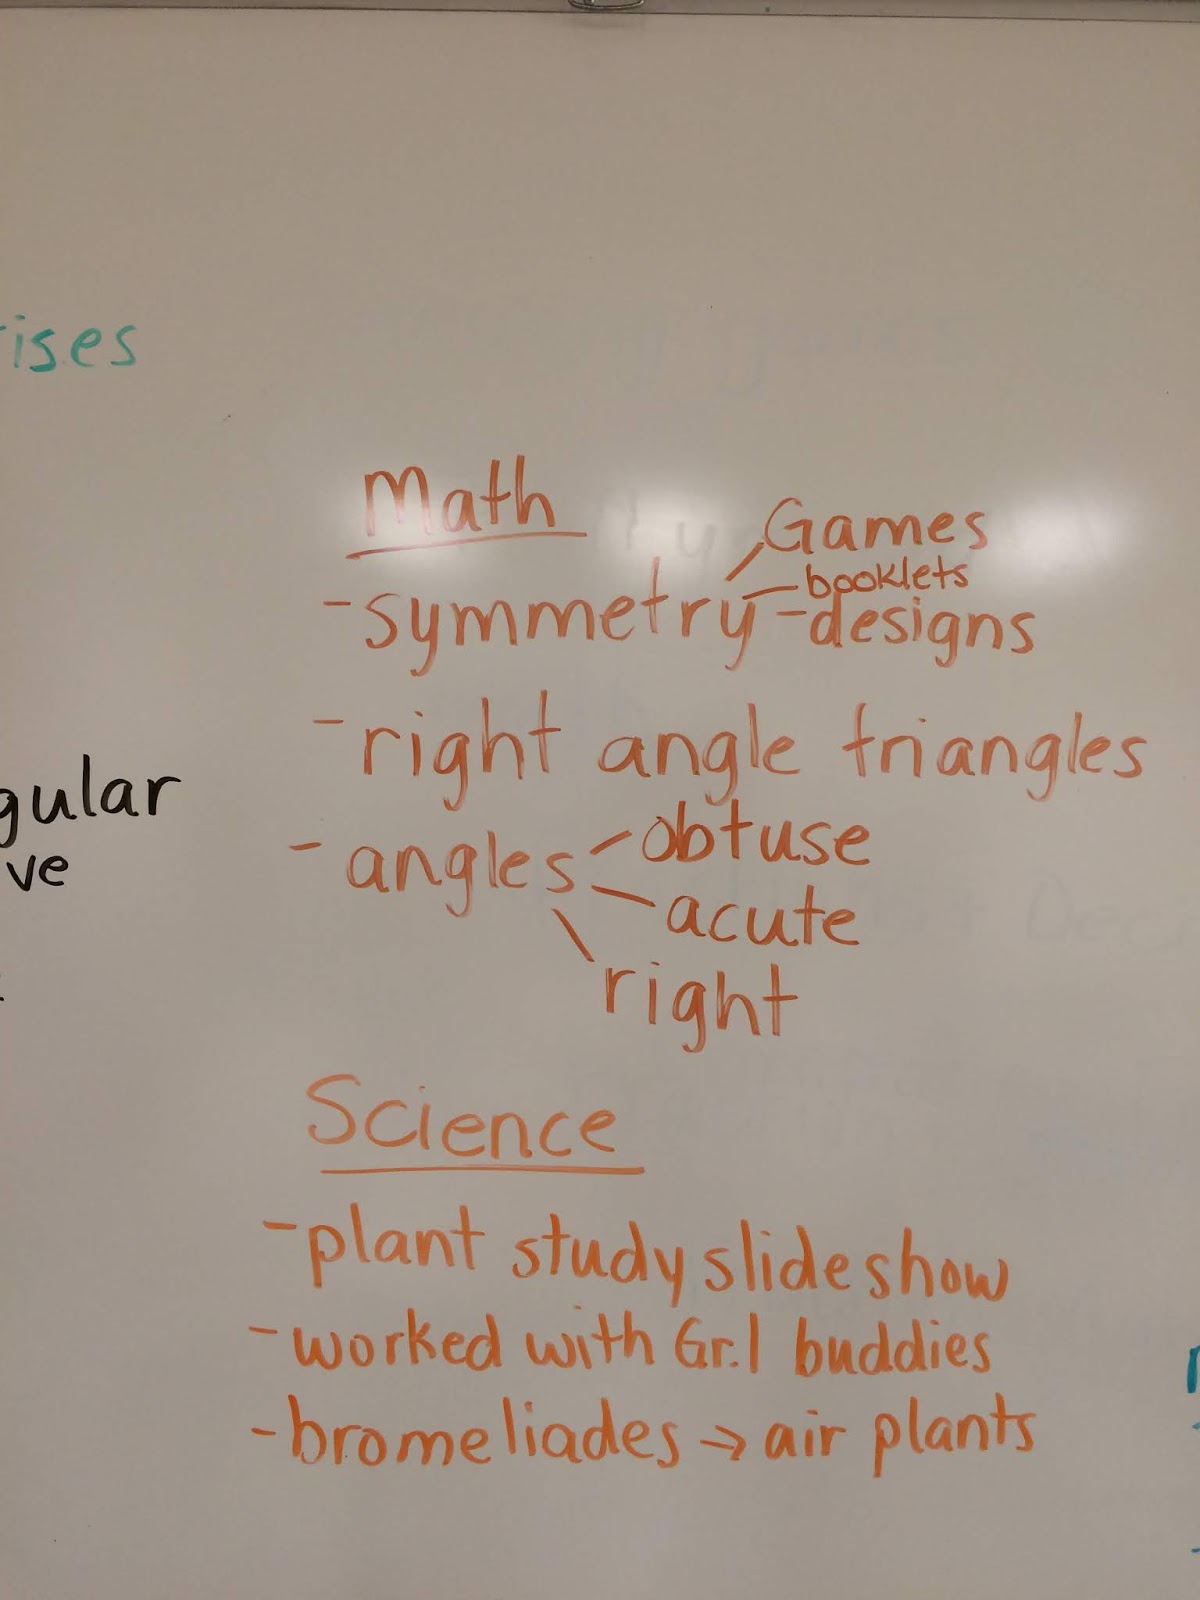 ises
Math
Games
booklets
-symmetry -designs
-right angle triangles
-angles
obtuse
acute
right
gular
ve
Science
-plant study slideshow
-worked with Gr.1 buddies
-bromeliades → air plants